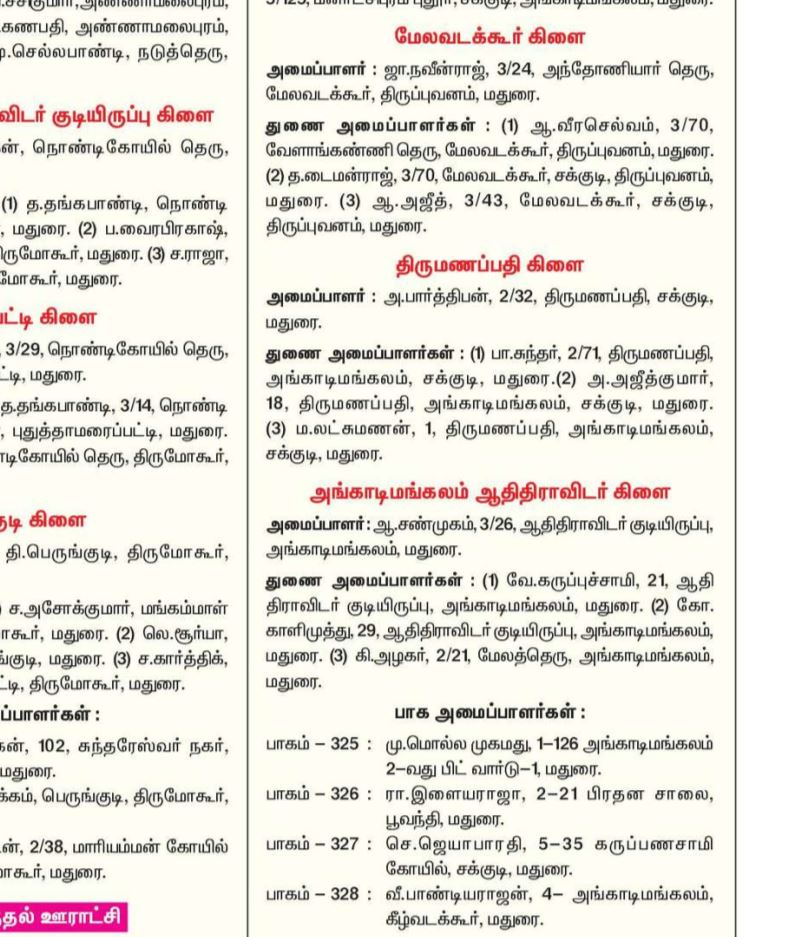 அண்ணாமலைபுரம்,
கணபதி, அண்ணாமலைபுரம்,
மு.செல்லபாண்டி, நடுத்தெரு,
விடர் குடியிருப்பு கிளை
ன், நொண்டிகோயில் தெரு,
(1) த.தங்கபாண்டி, நொண்டி
, மதுரை. (2) ப.வைரபிரகாஷ்,
திருமோகூர், மதுரை. (3) ச.ராஜா,
மோகூர், மதுரை.
பட்டி கிளை
, 3/29, நொண்டிகோயில் தெரு,
ட்டி, மதுரை.
த.தங்கபாண்டி, 3/14, நொண்டி
, புதுத்தாமரைப்பட்டி, மதுரை.
டிகோயில் தெரு, திருமோகூர்,
குடி கிளை
தி.பெருங்குடி, திருமோகூர்,
ச.அசோக்குமார், மங்கம்மாள்
ாகூர், மதுரை. (2) லெ.சூர்யா,
ங்குடி, மதுரை. (3) ச.கார்த்திக்,
ட்டி, திருமோகூர், மதுரை.
ப்பாளர்கள் :
கன், 102, சுந்தரேஸ்வர் நகர்,
மதுரை.
க்கம், பெருங்குடி, திருமோகூர்,
ன், 2/38, மாரியம்மன் கோயில்
ாகூர், மதுரை.
தல் ஊராட்சி
சக்குடி, அங்காடிமங்கலம், மதுரை.
மேலவடக்கூர் கிளை
அமைப்பாளர் : ஜா.நவீன்ராஜ், 3/24, அந்தோணியார் தெரு,
மேலவடக்கூர், திருப்புவனம், மதுரை.
துணை அமைப்பாளர்கள் : (1) ஆ.வீரசெல்வம், 3/70,
வேளாங்கண்ணி தெரு, மேலவடக்கூர், திருப்புவனம், மதுரை.
(2) த.டைமன்ராஜ், 3/70, மேலவடக்கூர், சக்குடி, திருப்புவனம்,
மதுரை. (3) ஆ.அஜீத், 3/43, மேலவடக்கூர், சக்குடி,
திருப்புவனம், மதுரை.
திருமணப்பதி கிளை
அமைப்பாளர் : அ.பார்த்திபன், 2/32, திருமணப்பதி, சக்குடி,
மதுரை.
துணை அமைப்பாளர்கள் : (1) பா.சுந்தர், 2/71, திருமணப்பதி,
அங்காடிமங்கலம், சக்குடி, மதுரை.(2) அ.அஜீத்குமார்,
18, திருமணப்பதி, அங்காடிமங்கலம், சக்குடி, மதுரை.
(3) ம.லட்சுமணன், 1, திருமணப்பதி, அங்காடிமங்கலம்,
சக்குடி, மதுரை.
அங்காடிமங்கலம் ஆதிதிராவிடர் கிளை
அமைப்பாளர்: ஆ.சண்முகம், 3/26, ஆதிதிராவிடர் குடியிருப்பு,
அங்காடிமங்கலம், மதுரை.
துணை அமைப்பாளர்கள் : (1) வே.கருப்புச்சாமி, 21, ஆதி
திராவிடர் குடியிருப்பு, அங்காடிமங்கலம், மதுரை. (2) கோ.
காளிமுத்து, 29, ஆதிதிராவிடர் குடியிருப்பு, அங்காடிமங்கலம்,
மதுரை. (3) கி.அழகர், 2/21, மேலத்தெரு, அங்காடிமங்கலம்,
மதுரை.
பாக அமைப்பாளர்கள் :
பாகம் – 325 : மு.மொல்ல முகமது, 1–126 அங்காடிமங்கலம்
2–வது பிட் வார்டு–1, மதுரை.
பாகம் – 326 : ரா.இளையராஜா, 2–21 பிரதன சாலை,
பூவந்தி, மதுரை.
பாகம் – 327 : செ.ஜெயாபாரதி, 5–35 கருப்பணசாமி
கோயில், சக்குடி, மதுரை.
பாகம் – 328 : வீ.பாண்டியராஜன், 4– அங்காடிமங்கலம்,
கீழ்வடக்கூர், மதுரை.